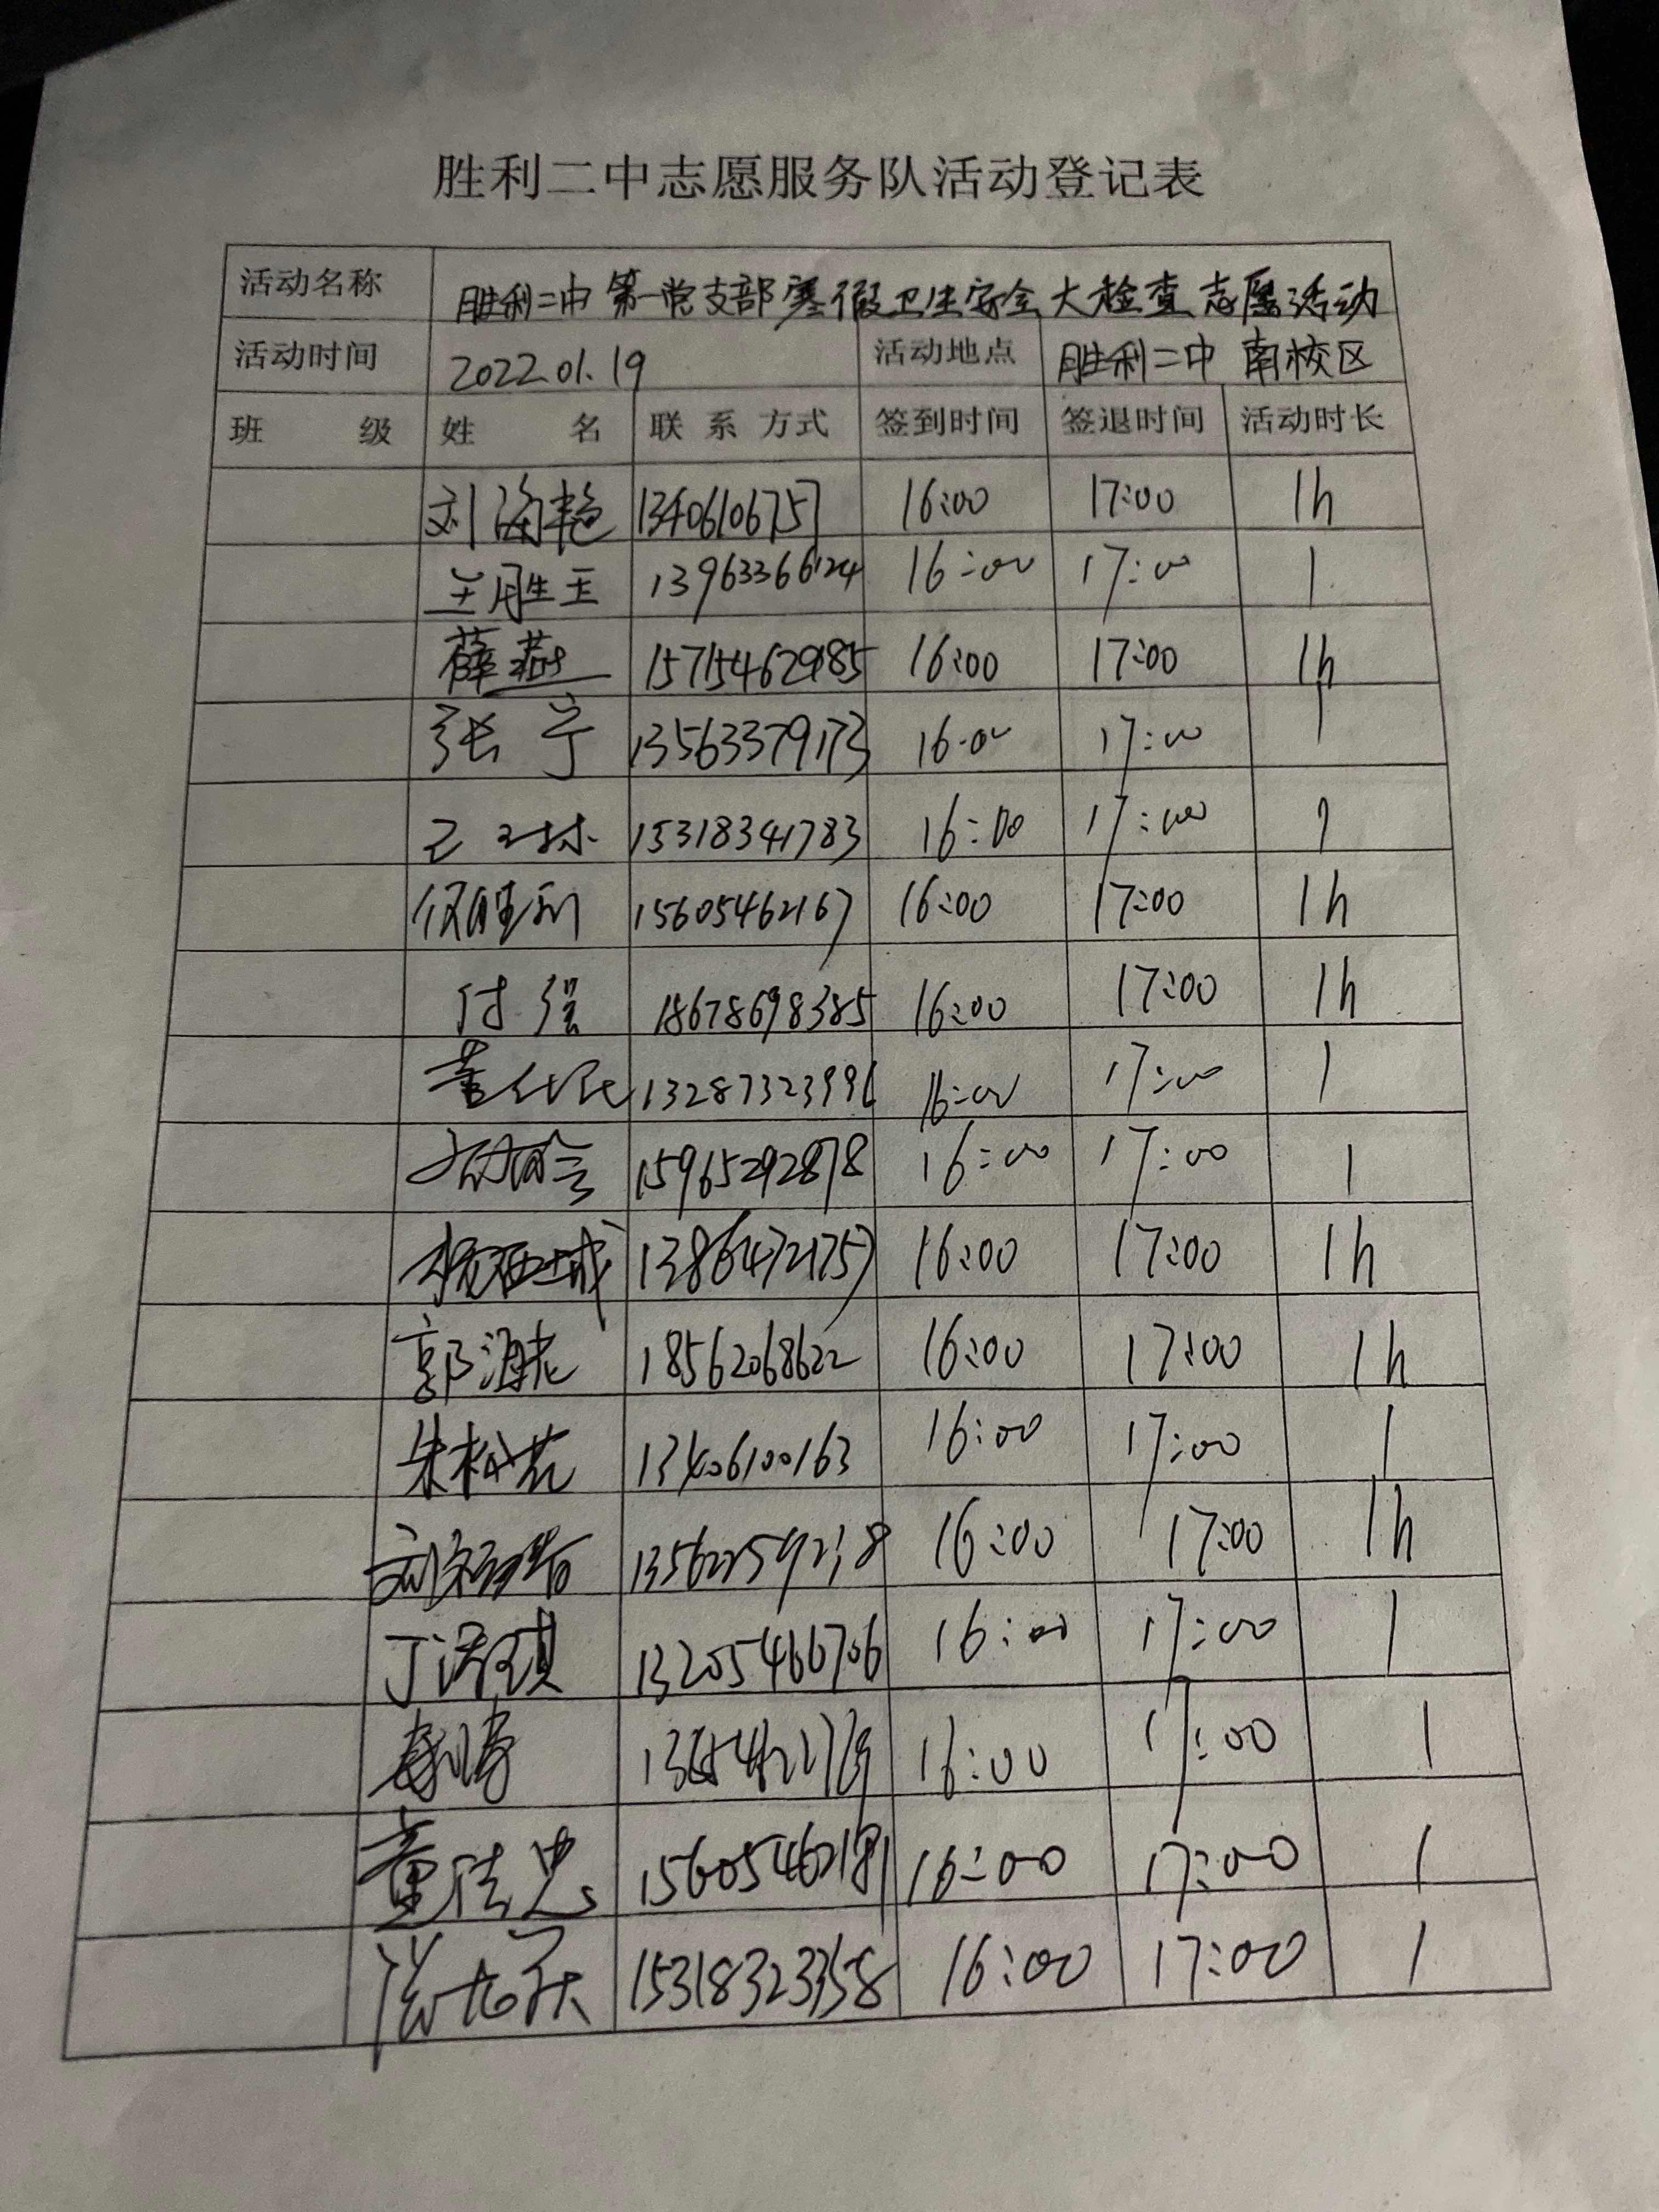 胜利二中志愿服务队活动登记表
活动名称 胜利二中第一党支部寒假卫生安全大检查志愿活动
活动时间 2022.01.19 活动地点 胜利二中 南校区
班 级 姓 名 联 系 方式 签到时间 签退时间 活动时长
刘海艳 13406106757 16:00 17:00 1h
王胜玉 13963366124 16:00 17:00 1
薛燕 15715462985 16:00 17:00 1h
张宁 13563379173 16:00 17:00 1
15318341783 16:00 17:00 1
仪胜利 15605462167 16:00 17:00 1h
付强 18678698385 16:00 17:00 1h
13287323996 16:00 17:00 1
15965292878 16:00 17:00 1
13864721757 16:00 17:00 1h
郭海龙 18562068622 16:00 17:00 1h
朱松花 13406100163 16:00 17:00 1
16:00 17:00 1h
丁淑琪 13205466706 16:00 17:00 1
16:00 17:00 1
董传忠 15605462181 16:00 17:00 1
15318323358 16:00 17:00 1